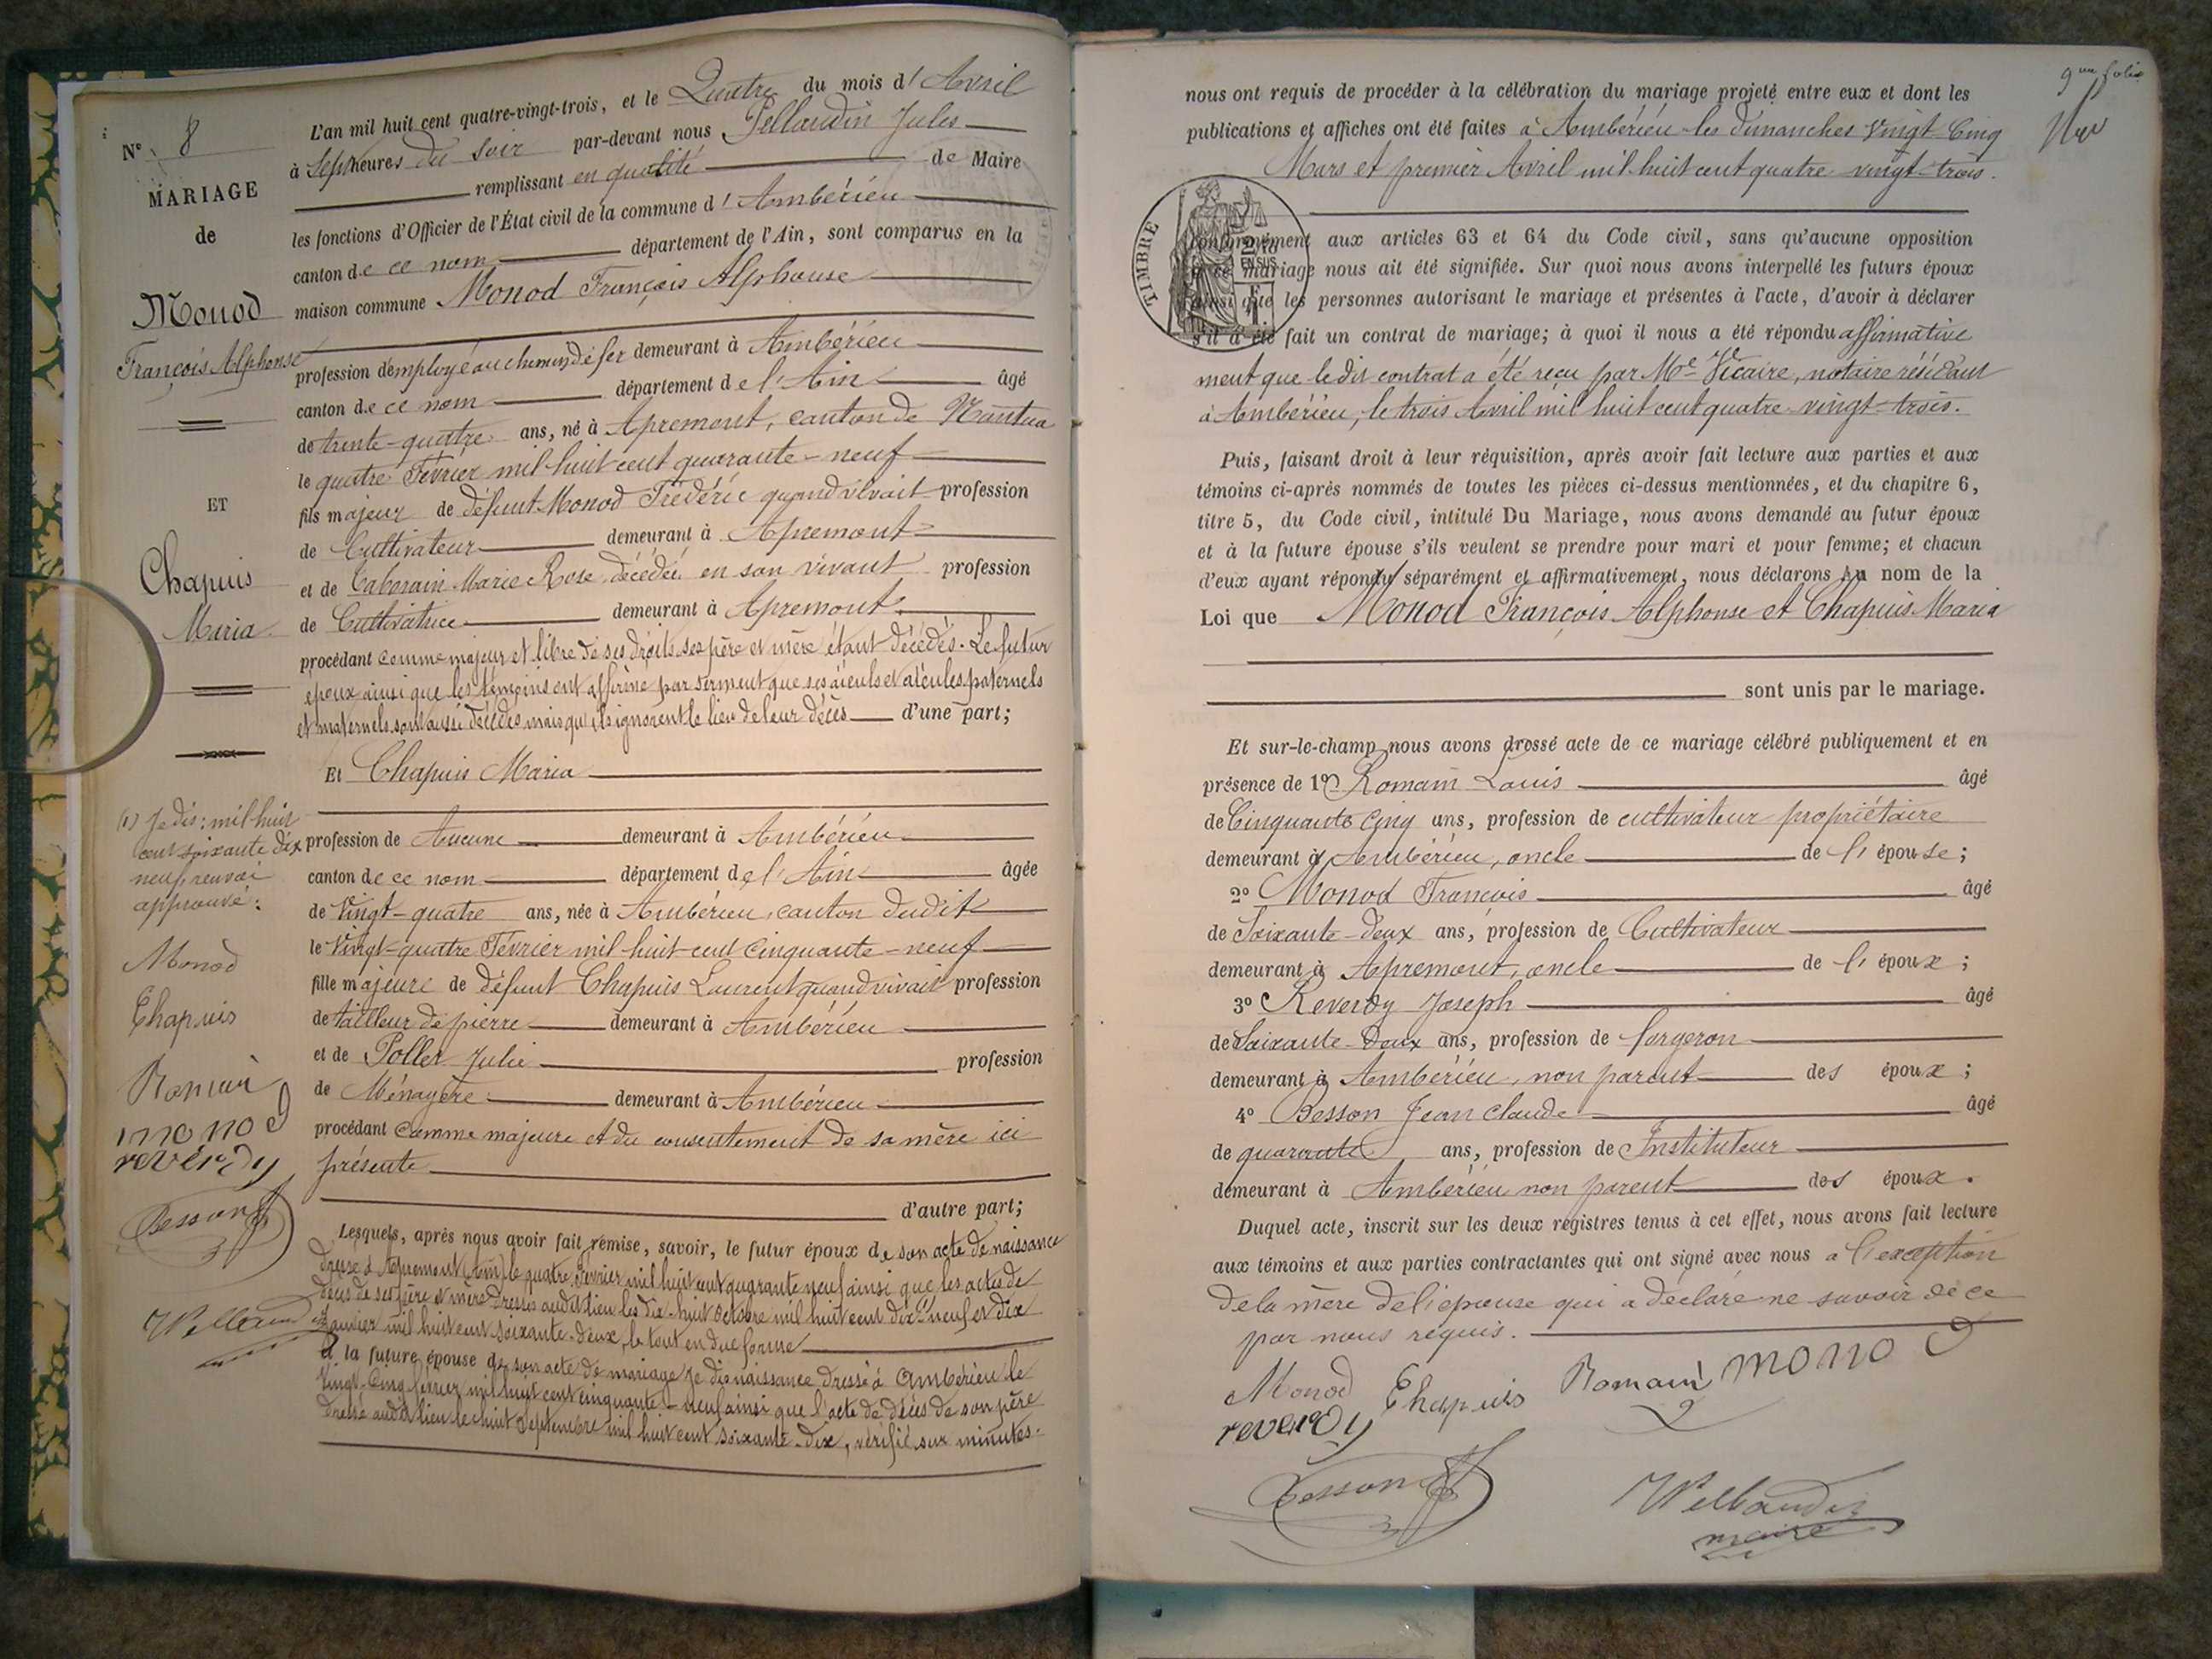 N° 8
MARIAGE
de
Monod
François Alphonse
ET
Chapuis
Maria
(1) Je dis : mil huit
cent soixante dix
neuf renvoi
approuvé :
Monod
Chapuis
Romain
monod
reverdy
Besson
Pellaudin
L'an mil huit cent quatre-vingt-trois, et le Quatre du mois d'Avril
à Sept heures du soir par-devant nous Pellaudin Jules
remplissant en qualité de Maire
les fonctions d'Officier de l'État civil de la commune d'Ambérieu
canton de ce nom département de l'Ain, sont comparus en la
maison commune Monod François Alphonse
profession d'employé au chemin de fer demeurant à Ambérieu
canton de ce nom département de l'Ain âgé
de trente-quatre ans, né à Apremont, canton de Nantua
le quatre Février mil huit cent quarante-neuf
fils majeur de défunt Monod Frédéric quand vivait profession
de Cultivateur demeurant à Apremont
et de Marie Rose décédée en son vivant profession
de Cultivatrice demeurant à Apremont
procédant comme majeur et libre de ses droits ses père et mère étant décédés. Le futur
époux ainsi que les témoins ont affirmé par serment que ses aïeuls et aïeules paternels
et maternels sont aussi décédés mais qu'ils ignorent le lieu de leur décès d'une part;
Et Chapuis Maria
profession de Aucune demeurant à Ambérieu
canton de ce nom département de l'Ain âgée
de Vingt-quatre ans, née à Ambérieu, canton dudit
le Vingt-quatre Février mil huit cent cinquante-neuf
fille majeure de défunt Chapuis Laurent quand vivait profession
de tailleur de pierre demeurant à Ambérieu
et de Pollet Julie profession
de Ménagère demeurant à Ambérieu
procédant comme majeure et du consentement de sa mère ici
présente
d'autre part;
Lesquels, après nous avoir fait remise, savoir, le futur époux de son acte de naissance
dressé à Apremont (Ain) le quatre Février mil huit cent quarante neuf ainsi que les actes de
décès de ses père et mère dressés audit lieu les dix-huit octobre mil huit cent dix neuf et dix
Janvier mil huit cent soixante-deux, le tout en due forme
et la future épouse de son acte de mariage je dis naissance dressé à Ambérieu le
Vingt-Cinq février mil huit cent cinquante-neuf ainsi que l'acte de décès de son père
dressé audit lieu le huit Septembre mil huit cent soixante-dix, vérifié sur minutes.
9me folio
nous ont requis de procéder à la célébration du mariage projeté entre eux et dont les
publications et affiches ont été faites à Ambérieu les dimanches Vingt Cinq
Mars et premier Avril mil huit cent quatre-vingt-trois.
TIMBRE
2/10
EN SUS
conformément aux articles 63 et 64 du Code civil, sans qu'aucune opposition
à ce mariage nous ait été signifiée. Sur quoi nous avons interpellé les futurs époux
ainsi que les personnes autorisant le mariage et présentes à l'acte, d'avoir à déclarer
s'il a été fait un contrat de mariage; à quoi il nous a été répondu affirmative
ment que le dit contrat a été reçu par Me Vicaire, notaire résidant
à Ambérieu, le trois Avril mil huit cent quatre-vingt-trois.
Puis, faisant droit à leur réquisition, après avoir fait lecture aux parties et aux
témoins ci-après nommés de toutes les pièces ci-dessus mentionnées, et du chapitre 6,
titre 5, du Code civil, intitulé Du Mariage, nous avons demandé au futur époux
et à la future épouse s'ils veulent se prendre pour mari et pour femme; et chacun
d'eux ayant répondu séparément et affirmativement, nous déclarons Au nom de la
Loi que Monod François Alphonse et Chapuis Maria
sont unis par le mariage.
Et sur-le-champ nous avons dressé acte de ce mariage célébré publiquement et en
présence de 1° Romain Louis âgé
de Cinquante Cinq ans, profession de cultivateur propriétaire
demeurant à Ambérieu, oncle de l'épouse;
2° Monod François âgé
de Soixante-deux ans, profession de Cultivateur
demeurant à Apremont, oncle de l'époux;
3° Reverdy Joseph âgé
de Soixante-Deux ans, profession de forgeron
demeurant à Ambérieu, non parent des époux;
4° Besson Jean Claude âgé
de quarante ans, profession de Instituteur
demeurant à Ambérieu non parent des époux.
Duquel acte, inscrit sur les deux registres tenus à cet effet, nous avons fait lecture
aux témoins et aux parties contractantes qui ont signé avec nous à l'exception
de la mère de l'épouse qui a déclaré ne savoir de ce
par nous requis.
Monod Chapuis Romain monod
reverdy
Besson
Pellaudin
maire